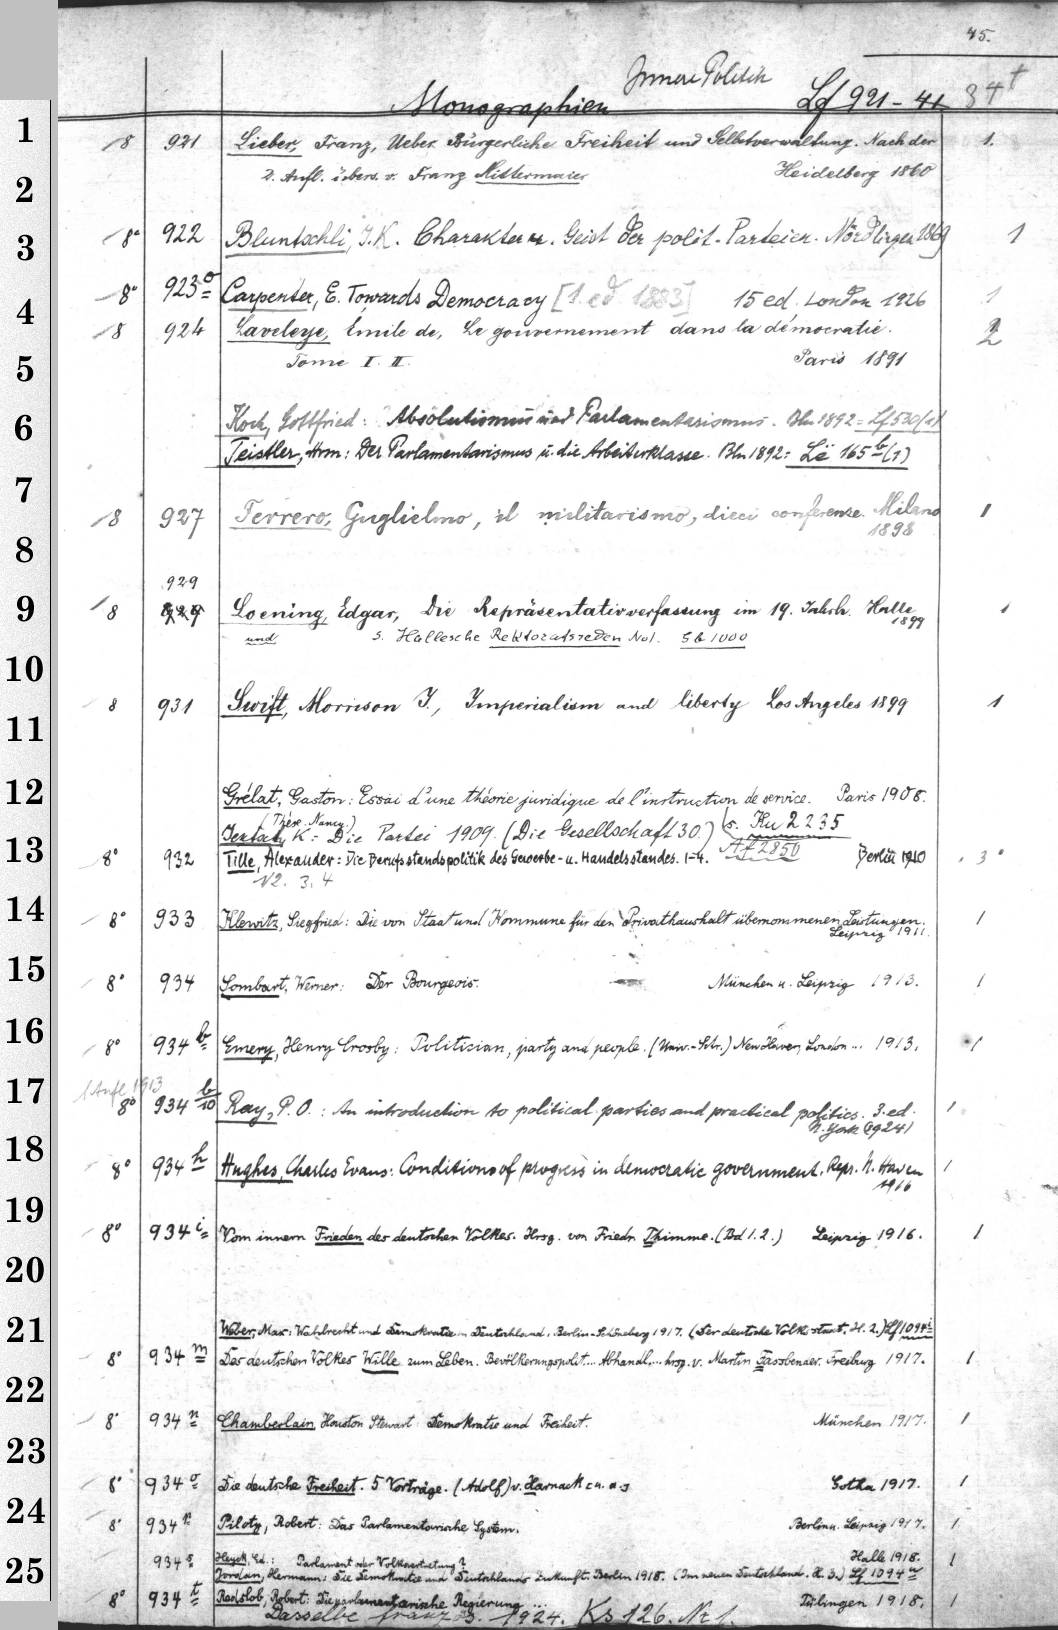 45.
Innere Politik
Monographien Lf 921-41 34t
1
8 921 Lieber, Franz, Ueber Bürgerliche Freiheit und Selbstverwaltung. Nach der 1.
2. Aufl. übers. v. Franz Mittermaier Heidelberg 1860
2
3
8° 922 Bluntschli, J.K. Charakter u. Geist der polit. Parteien. Nördlingen 1869 1
8° 923 a Carpenter, E. Towards Democracy [1 ed 1883] 15 ed. London 1926 1
4
8 924 Laveleye, Emile de, Le gouvernement dans la démocratie. 2
Tome I. II. Paris 1891
5
6
Koch, Gottfried: Absolutismus und Parlamentarismus. Bln 1892 = Lf 530/(1)
Teistler, Hrm: Der Parlamentarismus u. die Arbeiterklasse. Bln 1892: Lë 165 b (1)
7
8 927 Ferrero, Guglielmo, il militarismo, dieci conferenze. Milano 1
1898
8
929
9
8 Loening, Edgar, Die Repräsentativverfassung im 19. Jahrh. Halle 1
1899
und s. Hallesche Rektoratsreden No1. Sb 1000
10
8 931 Swift, Morrison I., Imperialism and liberty Los Angeles 1899 1
11
12
Grélat, Gaston: Essai d'une théorie juridique de l'instruction de service. Paris 1908.
(Thèse. Nancy.) s. Ku 2235
K: Die Partei 1909. (Die Gesellschaft 30) Af 2850
13
8° 932 Tille, Alexander: Die Berufsstandspolitik des Gewerbe- u. Handelsstandes. 1-4. Berlin 1910 3
N2. 3. 4
14
8° 933 Klewitz, Siegfried: Die von Staat und Kommune für den Privathaushalt übernommenen Leistungen. 1
Leipzig 1911.
15
8° 934 Sombart, Werner: Der Bourgeois. München u. Leipzig 1913. 1
16
8° 934 b Emery, Henry Crosby: Politician, party and people. (Univ.-Schr.) New Haven, London... 1913. 1
17
1 Aufl 1913
8° 934 b/10 Ray, P. O.: An introduction to political parties and practical politics. 3. ed. 1
N. York (1924)
18
8° 934 h Hughes, Charles Evans: Conditions of progress in democratic government. Repr. N. Haven 1
1916
19
8° 934 i Vom innern Frieden des deutschen Volkes. Hrsg. von Friedr. Thimme. (Bd 1.2.) Leipzig 1916. 1
20
21
Weber, Max: Wahlrecht und Demokratie in Deutschland. Berlin-Schöneberg 1917. (Der deutsche Volksstaat, H. 2.) Lf 1094 i
8° 934 m Des deutschen Volkes Wille zum Leben. Bevölkerungspolit... Abhandl... hrsg. v. Martin Fassbender. Freiburg 1917. 1
22
8° 934 n Chamberlain, Houston Stewart: Demokratie und Freiheit. München 1917. 1
23
8° 934 o Die deutsche Freiheit. 5 Vorträge. (Adolf) v. Harnack Gotha 1917. 1
24
8° 934 Piloty, Robert: Das Parlamentarische System. Berlin u. Leipzig 1917. 1
25
934 s Heyck, Ed.: Parlament oder Volksvertretung? Halle 1918. 1
Jordan, Hermann: Die Demokratie und Deutschlands Zukunft. Berlin 1918. (Im neuen Deutschland. H. 3.) Lf 1094 u
8° 934 t Redslob, Robert: Die parlamentarische Regierung ... Tübingen 1918. 1
Dasselbe franzos. 1924. Ks 126. Nr 1.